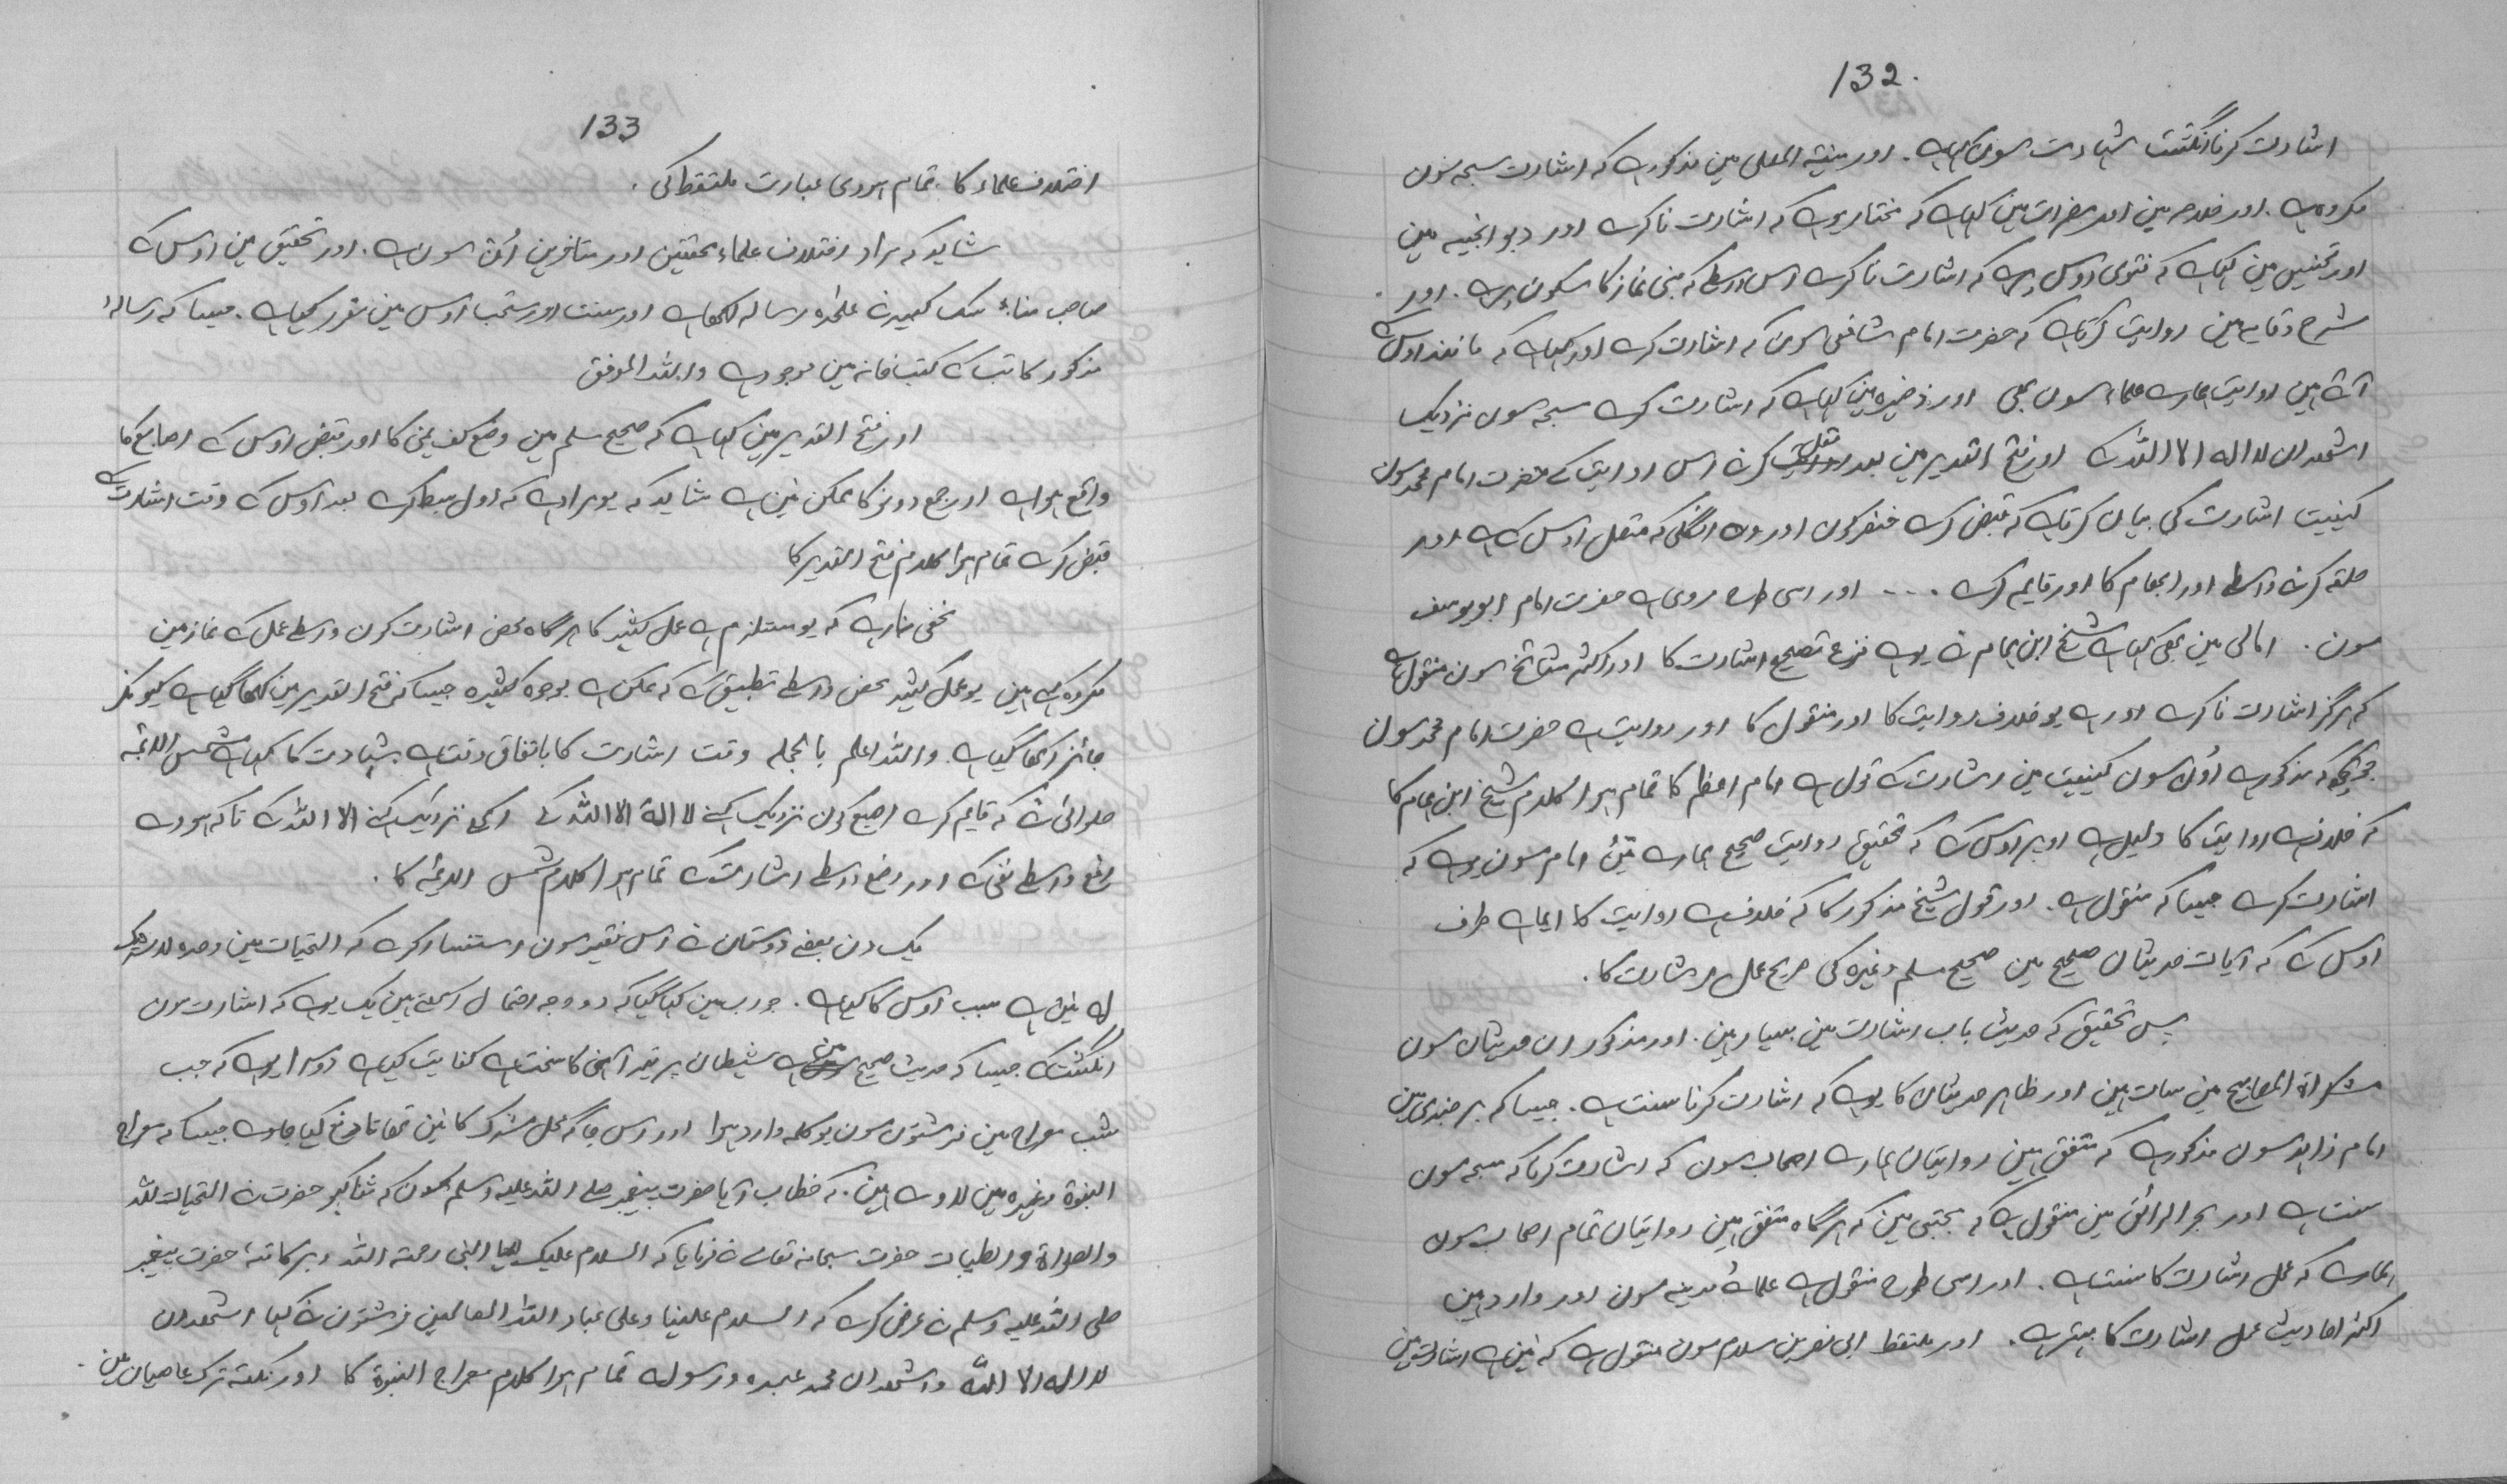 132.
اشارت کرنا انگشت شہادت سون کہیاہے۔ اور منیۃ المصلی مین مذکورہے کہ اشارت سبحہ سون
مکروہ ہے۔ اور خلاصہ مین اور مضمرات مین کہیاہے کہ مختار یوہے کہ اشارت ناکرے اور
اور تجنیس مین کہیاہے کہ فتوی اوس پرہے کہ اشارت ناکرے اس واسطے کہ مبنی نماز کا سکون پرہے۔ اور
شرح وقایہ مین روایت کرتاہے کہ حضرت امام شافعی سون کہ اشارت کرے اور کہیاہے کہ مانند اوس کے
آئے ہین روایت ہمارے علماء سون بھی اور ذخیرہ مین کہیاہے کہ اشارت کرے سبحہ سون نزدیک
اشھد ان لا الہ الا اللہ کے اور فتح القدیر مین بعد نقل کرنے اس روایت کے حضرت امام محمد سون
کیفیت اشارت کی بیان کرتاہے کہ قبض کرے خنصر کون اور وہ انگلی کہ متصل اوس کے ہے اور
حلقہ کرے واسطے اور ابھام کا اور قایم کرے ۔۔۔ اور اسی طرح مروی ہے حضرت امام ابو یوسف
سون۔ امالی مین بھی کہیاہے شیخ ابن ہمام نے یوہے فرع تصحیح اشارت کا اور اکثر مشائخ سون منقول ہے
کہ ہرگز اشارت ناکرے اور ہے یو خلاف روایت کا اور منقول کا اور روایت ہے حضرت امام محمد سون
کہ مذکورہے اون سون کیفیت مین اشارت کے قول ہے امام اعظم کا تمام ہوا کلام شیخ ابن ہمام کا
کہ خلاف ہے روایت کا دلیل ہے اوپر اوس کے کہ تحقیق روایت صحیح ہمارے تین امام سون یوہے کہ
اشارت کرے جیسا کہ منقول ہے۔ اور قول شیخ مذکور کا کہ خلاف ہے روایت کا ایما ہے طرف
اوس کے کہ آیات حدیثان صحیح مین صحیح مسلم وغیرہ کی صریح عمل پر اشارت کا۔
پس تحقیق کہ حدیث باب اشارت مین بسیار ہین۔ اور مذکور ان حدیثان سون
مشکواۃ المصابیح مین سات ہین اور ظاہر حدیثان کا یوہے کہ اشارت کرنا سنت ہے۔ جیسا کہ
امام زاہد سون مذکورہے کہ متفق ہین روایتان ہمارے اصحاب سون کہ اشارت کرنا کہ سبحہ سون
سنت ہے اور بحر الرائق مین منقول ہے کہ مجتبی مین کہ ہرگاہ متفق ہین روایتان تمام اصحاب سون
ہمارے کہ عمل اشارت کا سنت ہے۔ اور اسی طرح منقول ہے علماء مدینہ سون اور وارد ہین
اکثر احادیث عمل اشارت کا بہتر ہے۔ اور ملتقط ابی نصر بن سلام سون منقول ہے کہ نین ہے اشارت مین
133
اختلاف علماء کا۔ تمام ہووی عبارت ملتقط کی۔
شاید کہ مراد اختلاف علماء محققین اور متاخرین اُن سون ہے۔ اور تحقیق مین اوس کے
صاحب مناء سک کبیر نے علٰحدہ رسالہ لکھاہے اور سنت اور مستحب اوس مین مقرر کیاہے۔ جیسا کہ رسالہ
مذکور کاتب کے کتبخانہ مین موجود ہے واللہ الموفق
اور فتح القدیر مین کہیاہے کہ صحیح مسلم مین وضع کف یمنی کا اور قبض اوس کے اصابع کا
واقع ہواہے اور جمع دونو کا ممکن نین ہے شاید کہ یو مراد ہے کہ اول بسط کرے بعد اوس کے وقت اشارت کے
قبض کرے تمام ہوا کلام فتح القدیر کا
مخفی نہ رہے کہ یو مستلزم ہے عمل کثیر کا ہرگاہ محض اشارت کون واسطے عمل کے نماز مین
مکروہ کہے ہین یو عمل کثیر محض واسطے تطبیق کے کہ ممکن ہے بوجوہ کثیرہ جیسا کہ فتح القدیر مین لکھا گیاہے کیونکر
جائز رکھا گیاہے۔ واللہ اعلم بالجملہ وقت اشارت کا باتفاق وقت ہے شہادت کا کہیاہے شمس الائمہ
حلوائی نے کہ قایم کرے اصبع کون نزدیک کہنے لا الہ الا اللہ کے رکھے نزدیک کہنے الا اللہ کے تاکہ ہووے
رفع واسطے نفی کے اور وضع واسطے اشارت کے تمام ہوا کلام شمس الائمہ کا۔
یک دن بعضے دوستان نے اس فقیر سون استفسار کرے کہ التحیات مین وحدہ لاشریک
لہ نین ہے سبب اوس کا کیاہے۔ جواب مین کہا گیا کہ دو وجہ احتمال رکھتے ہین یک یوہے کہ اشارت سون
انگشت کے جیسا کہ حدیث صحیح مین ہے شیطان پر تیر آہنی کا سخت ہے کفایت کیاہے دوسرا یوہے کہ جب
شب معراج مین فرشتون سون یو کلمہ وارد ہوا اور اس جاگہ محل مشرک کا نین تھا تا دفع کیا جاوے جیسا کہ معراج
النبوۃ وغیرہ مین لاوے ہین۔ کہ خطاب آیا حضرت پیغمبر صلے اللہ علیہ وسلم کون کہ ثنا کہو حضرت نے التحیات للہ
والصلواۃ والطیبات حضرت سبحانہ تعالے نے فرمایا کہ السلام علیک ایھا النبی رحمۃ اللہ وبرکاتہ حضرت پیغمبر
صلی اللہ علیہ وسلم نے عرض کرے کہ السلام علینا وعلی عباد اللہ الصالحین فرشتون نے کہا اشھد ان
لا الہ الا اللہ واشھد ان محمد عبدہ ورسولہ تمام ہوا کلام معراج النبوۃ کا اور نکتہ ترک عاصیان مین۔